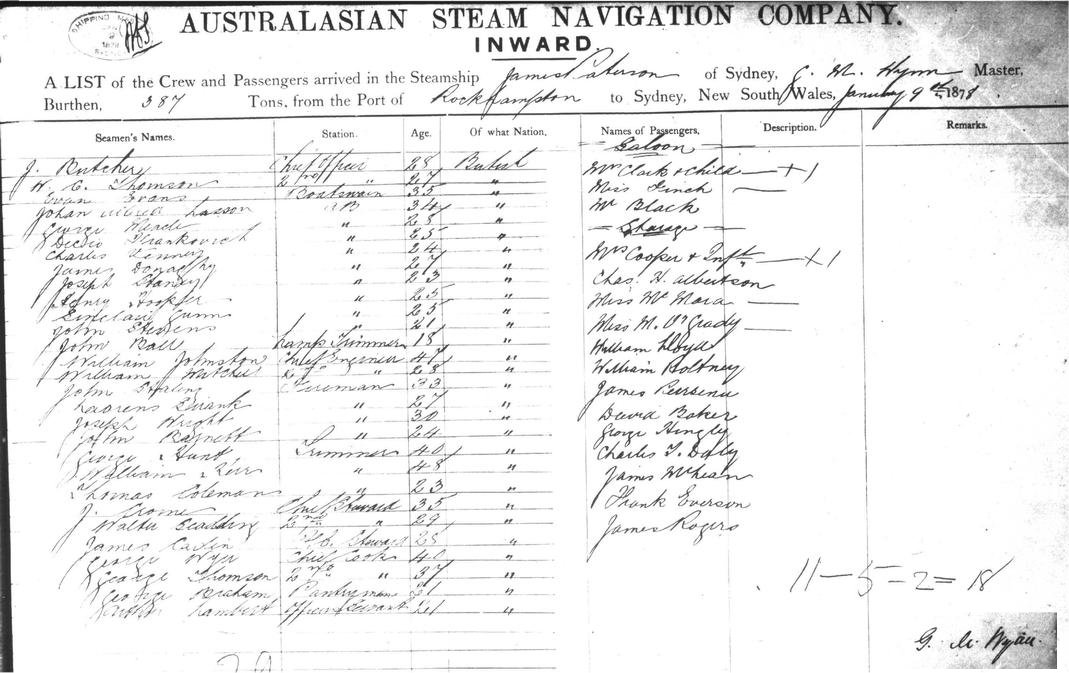 AUSTRALASIAN STEAM NAVIGATION COMPANY.
INWARD.
A LIST of the Crew and Passengers arrived in the Steamship James Paterson of Sydney, G. M. Wynn Master,
Burthen, 387 Tons, from the Port of Rockhampton to Sydney, New South Wales, January 9th 1878.
Seamen's Names. Station. Age. Of what Nation. Names of Passengers. Description. Remarks.
Saloon
J. Butcher Chief Officer 28 British Mrs Clark & Child — + 1
W. C. Thomson 2nd " 27 " Miss Finch —
Evan Evans Boatswain 35 " Mr Black
Johan Alfred Lasson AB 34 " Steerage
George " 28 " Mrs Cooper & Inft — + 1
" 25 " Chas. H. Albertson
Charles Kenney " 24 " Miss Mc Mara —
James " 27 " Miss M. O'Grady —
Joseph " 23 " William Lloyd
Henry Hooper " 25 " William Boltney
Sinclair Gunn " 25 " James
John Stevens " 21 " David Baker
John Ball Lamp Trimmer 18 " George Hingly
William Johnston Chief Engineer 47 " Charles T. Daly
William Butcher 2nd " 28 " James McLean
John Fireman 33 " Frank Everson
Laorens Frank " 27 " James Rogers
Joseph Wright " 30 "
John Bagnett " 24 "
George Hunt Trimmer 40 "
William Kerr " 48 "
Thomas Coleman " 23 "
J. Crome Chief Steward 35 "
Walter 2nd " 29 "
James Carlin Steward 28 "
George Wyer Chief Cook 40 "
George Thomson 2nd " " 37 "
George Graham Pantryman 21 "
Arthur Lambert Officers Servant 21 "
11 – 5 – 2 = 18
29
G. M. Wynn